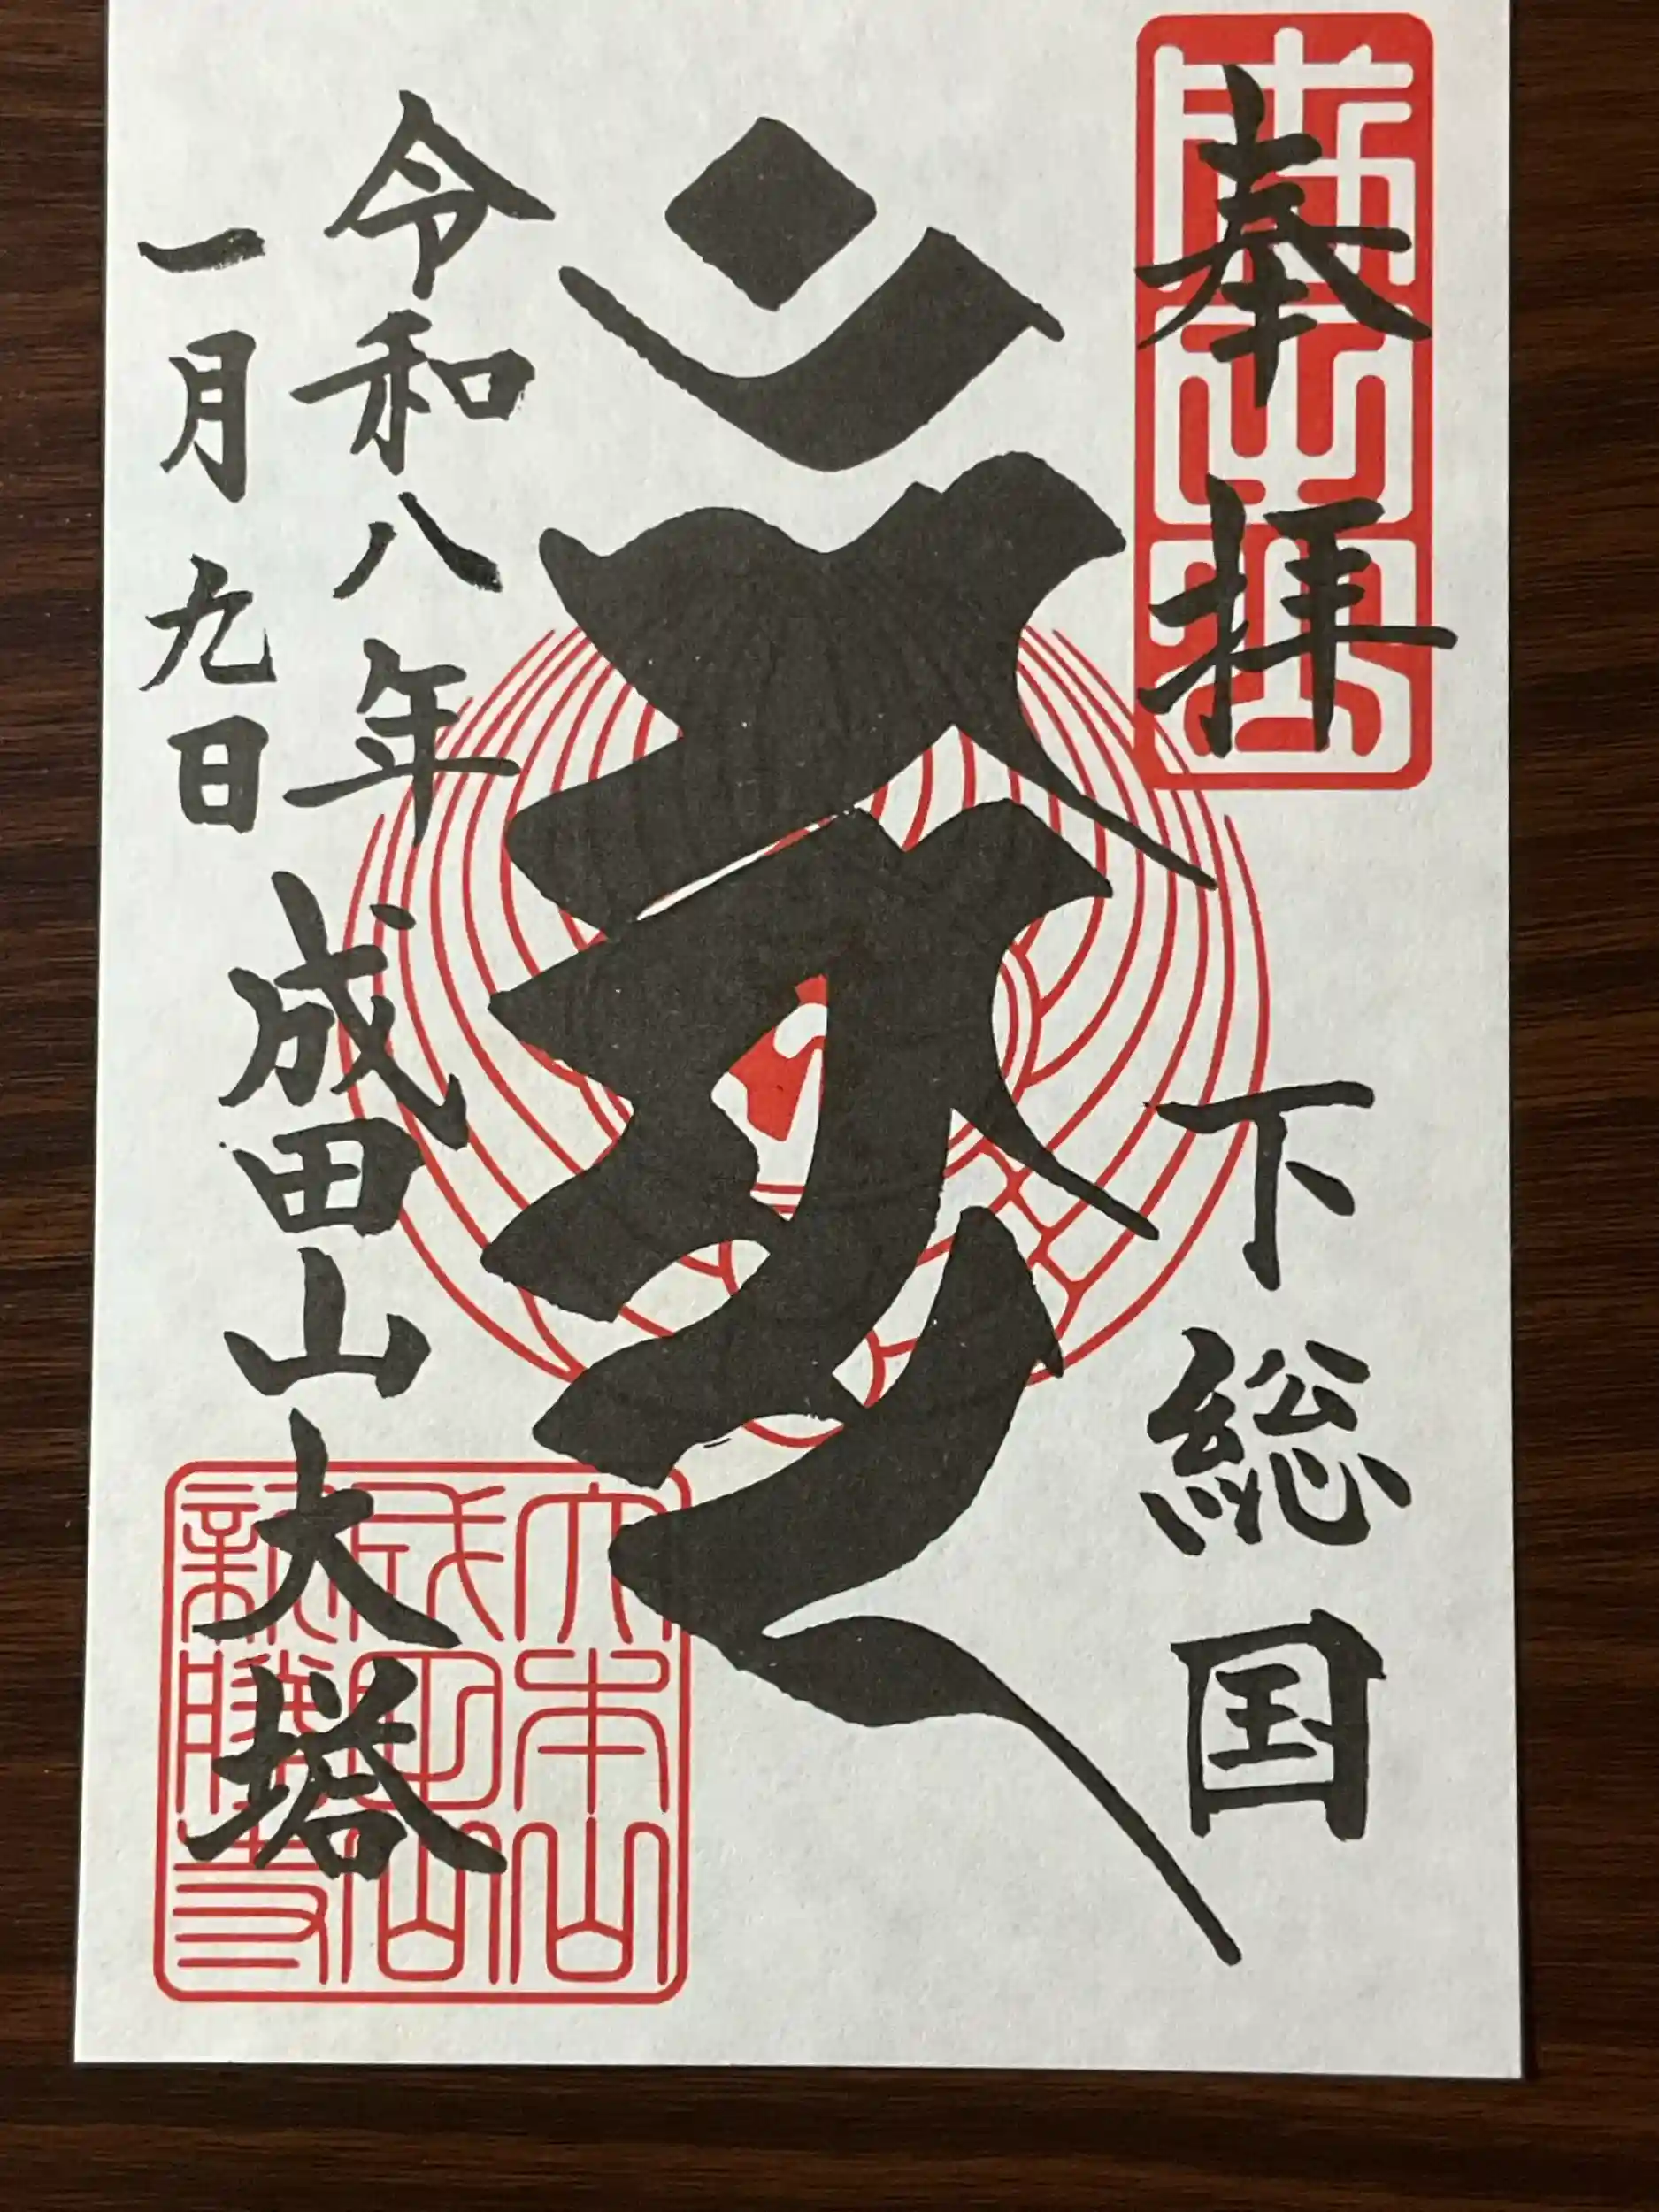 奉拝
下総国
令和八年
一月九日
成田山大塔
大本山
成田山
新勝寺